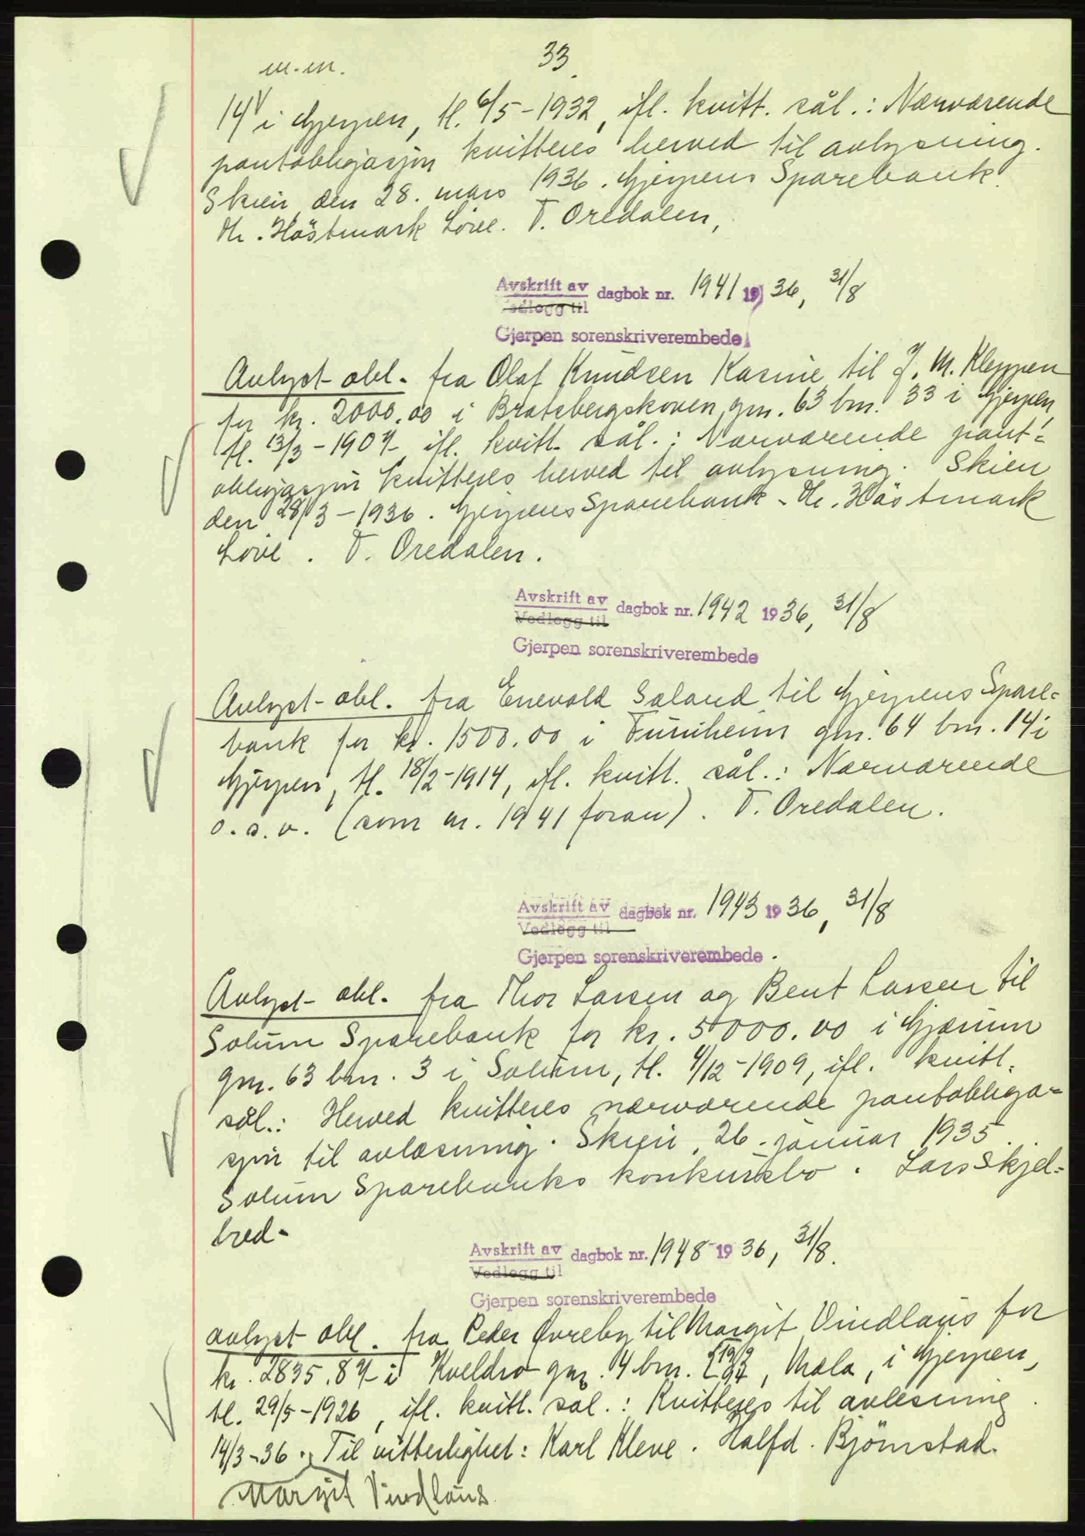 33.
m.m.
14 i Gjerpen, tl. 6/5-1932, ifl. kvitt. sål.: Nærværende
pantobligasjon kvitteres herved til avlysning.
Skien, den 28. mars 1936. Gjerpens Sparebank.
Hr. Höstmark Löve. T. Oredalen,
Avskrift av dagbok nr. 1941 1936, 31/8
Vedlegg til
Gjerpen sorenskriverembede
Avlyst obl. fra Olaf Knudsen Kasine til J. M. Kleppen
for kr. 2000.00 i Bratsbergskoven, gnr. 63 bnr. 33 i Gjerpen,
tl. 13/3-1907, ifl. kvitt. sål.: Nærværende pant-
obligasjon kvitteres herved til avlysning. Skien
den 28/3-1936. Gjerpens Sparebank. Hr. Höstmark
Löve. T. Oredalen.
Avskrift av dagbok nr. 1942 1936, 31/8
Vedlegg til
Gjerpen sorenskriverembede
Avlyst obl. fra Enevold Saland til Gjerpens Spare-
bank for kr. 1500.00 i Furuheim gnr. 64 bnr. 14 i
Gjerpen, tl. 18/2-1914, ifl. kvitt. sål.: Nærværende
o.s.v. (som nr. 1941 foran). T. Oredalen.
Avskrift av dagbok nr. 1943 1936, 31/8
Vedlegg til
Gjerpen sorenskriverembede.
Avlyst obl. fra Thor Larsen og Bent Larsen til
Solum Sparebank for kr. 5000.00 i Gjærum
gnr. 63 bnr. 3 i Solum, tl. 4/12-1909, ifl. kvitt.
sål.: Herved kvitteres nærværende pantobliga-
sjon til avlæsning. Skien, 26. januar 1935.
Solum Sparebanks konkursbo. Lars Skjel-
bred.
Avskrift av dagbok nr. 1948 1936, 31/8.
Vedlegg til
Gjerpen sorenskriverembede
Avlyst obl. fra Peder Øvreby til Margit Vindlaus for
kr. 2835.87 i Kveldro gnr. 4 bnr. Mæla, i Gjerpen,
tl. 29/5-1926, ifl. kvitt. sål.: Kvitteres til avlesning.
14/3-36. Til vitterlighet: Karl Kleve. Halfd. Björnstad.
Margit Vindlaus